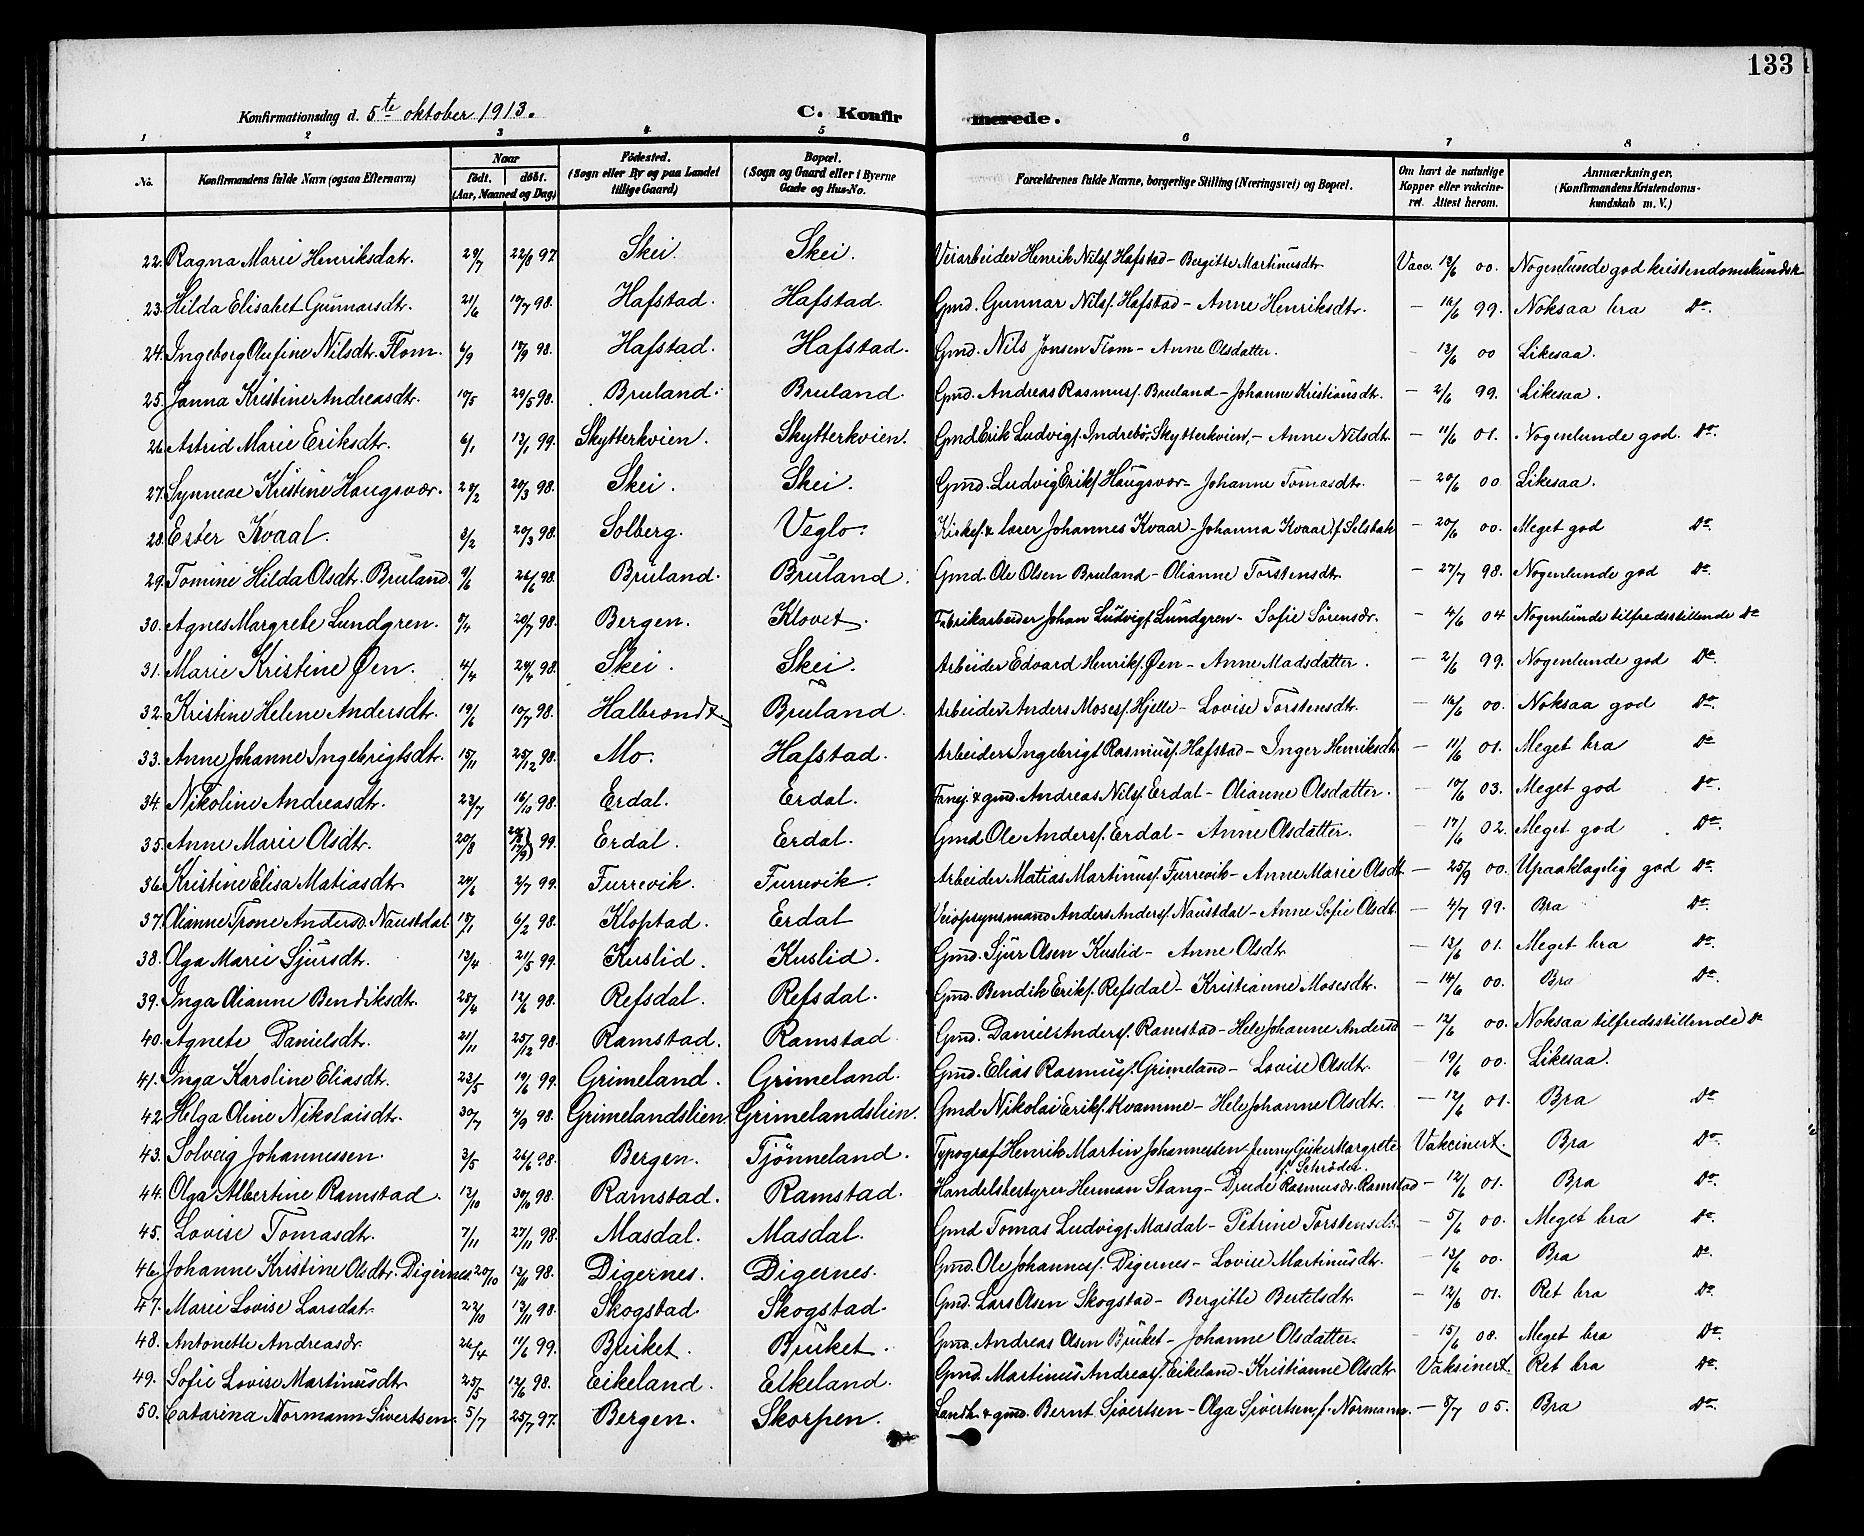 133
Konfirmationsdag d. 5te oktober 1913.
C. Konfirmerede.
1 2 3 4 5 6 7 8
No. Konfirmandens fulde Navn (ogsaa Efternavn) Naar født. døbt. (Aar, Maaned og Dag) Fødested. (Sogn eller By og paa Landet tillige Gaard) Bopæl. (Sogn og Gaard eller i Byerne Gade og Hus-No. Forældrenes fulde Navne, borgerlige Stilling (Næringsvei) og Bopæl. Om havt de naturlige Kopper eller vakcineret. Attest herom. Anmærkninger. (Konfirmandens Kristendomskundskab m. V.)
22. Ragna Marie Henriksdatr. 29/7 22/8 97 Skei. Skei. Veiarbeider Henrik Nilsf. Hafstad - Bergitte Martinusdtr Vacc. 12/6 00. Nogenlunde god kristendomskundsk
23. Hilda Elisabet Gunnarsdtr. 21/6 17/7 98. Hafstad. Hafstad. Gmd. Gunnar Nilsf. Hafstad - Anne Henriksdtr. - 16/6 99. Noksaa bra Do.
24. Ingeborg Olufine Nilsdtr. Flom. 6/9 18/9 98. Hafstad. Hafstad. Gmd. Nils Jonsen Flom - Anne Olsdatter. - 13/6 00 Likesaa.
25. Janna Kristine Andreasdtr. 10/5 29/5 98. Bruland. Bruland. Gmd. Andreas Rasmusf. Bruland - Johanne Kristiansdtr. - 2/6 99. Likesaa.
26. Astrid Marie Eriksdtr. 6/1 13/1 99. Skytterkvien. Skytterkvien. Gmd Erik Ludvigf. Indrebö, Skytterkvien, - Anne Nilsdtr. - 11/6 01. Nogenlunde god. Do.
27. Synneve Kristine Haugsvær. 28/2 20/3 98. Skei. Skei. Gmd. Ludvig Eriksf Haugsvær - Johanne Tomasdtr. - 20/6 00 Likesaa.
28. Ester Kvaal. 8/2 20/3 98. Solberg. Veglo. Kirkes. & lærer Johannes Kvaal - Johanna Kvaal f. Selstak - 20/6 00. Meget god Do
29. Tomine Hilda Olsdtr. Bruland. 9/6 26/6 98. Bruland. Bruland. Gmd. Ole Olsen Bruland - Olianne Torstensdtr. - 27/7 98. Nogenlunde god Do.
30. Agnes Margrete Lundgren. 8/4 20/7 98. Bergen. Klovet. Fabrikarbeider Johan Ludvigf. Lundgren - Sofie Sörensdr. - 4/6 04 Nogenlunde tilfredsstillende Do
31. Marie Kristine Øen. 4/4 24/4 98. Skei. Skei. Arbeider Edvard Henriksf. Øen - Anne Madsdatter. - 2/6 99. Nogenlunde god Do.
32. Kristine Helene Andersdtr. 19/6 10/7 98. Halbrendt Bruland. Arbeider Anders Mosesf. Hjelle - Lovise Torstensdtr. - 16/6 00. Noksaa god Do.
33. Anne Johanne Ingebrigtsdtr. 15/11 25/12 98. Mo. Hafstad. Arbeider Ingebrigt Rasmusf. Hafstad - Inger Henriksdtr - 11/6 01. Meget bra Do
34. Nikoline Andreasdtr. 23/7 16/10 98. Erdal. Erdal. Fanej. & gmd. Andreas Nilsf. Erdal - Olianne Olsdatter. - 10/6 03. Meget god Do.
35. Anne Marie Olsdtr. 20/8 99. Erdal. Erdal. Gmd Ole Andersf. Erdal - Anne Olsdatter. - 17/6 02. Meget god Do.
36. Kristine Elisa Matiasdtr 24/6 2/7 99. Furrevik. Furrevik. Arbeider Matias Martinusf. Furrevik - Anne Marie Olsdtr - 25/9 00. Upaaklagelig god Do.
37. Olianne Trone Andersd. Naustdal 18/1 6/2 98. Klopstad. Erdal Veiopsynsmand Anders Andersf. Naustdal - Anne Sofie Olsdtr. - 4/7 99. Bra Do.
38. Olga Marie Sjursdtr. 13/4 21/5 99. Kuslid. Kuslid. Gmd. Sjur Olsen Kuslid - Anne Olsdtr - 13/6 01. Meget bra Do.
39. Inga Olianne Bendiksdtr. 25/4 12/6 98. Refsdal. Refsdal. Gmd. Bendik Eriksf. Refsdal - Kristianne Mosesdtr. - 14/6 00. Bra Do.
40. Agnete Danielsdtr. 21/11 25/12 98. Ramstad. Ramstad. Gmd. Daniel Andersf. Ramstad - Hele Johanne Andersd - 12/6 00. Noksaa tilfredsstillende Do
41. Inga Karoline Eliasdtr. 23/5 19/6 99. Grimeland. Grimeland. Gmd. Elias Rasmusf. Grimeland - Lovise Olsdtr. - 19/6 00. Likesaa.
42. Helga Oline Nikolaisdtr. 30/7 4/9 98. Grimelandslien. Grimelandslien. Gmd Nikolai Eriksf. Kvamme - Hele Johanne Olsdtr. - 12/6 01. Bra Do
43. Solveig Johannessen. 3/5 26/6 98. Bergen. Tjönneland. Typograf Henrik Martin Johannessen Jenny Margrete f. Schröder. Vakcinert. Bra Do.
44. Olga Albertine Ramstad. 12/10 30/10 98. Ramstad. Ramstad. Handelsbestyrer Herman Stang - Drude Rasmusdr. Ramstad - 12/6 01. Bra Do.
45. Lovise Tomasdtr. 7/11 27/11 98. Masdal. Masdal. Gmd Tomas Ludvigf. Masdal - Petrine Torstensdtr - 5/6 00. Meget bra Do.
46. Johanne Kristine Olsdtr. Digernes 20/10 13/11 98. Digernes. Digernes. Gmd. Ole Johannesf. Digernes - Lovise Martinusdtr. - 13/6 00. Bra Do.
47. Marie Lovise Larsdat. 22/10 13/11 98. Skogstad. Skogstad. Gmd. Lars Olsen Skogstad - Bergitte Bertelsdtr. - 12/6 01. Ret bra Do.
48. Antonette Andreasdr. 26/4 11/6 99. Bruket. Bruket. Gmd. Andreas Olsen Bruket - Johanne Olsdatter. - 15/6 08. Meget bra Do.
49. Sofie Lovise Martinusdtr 25/5 12/6 98. Eikeland. Eikeland. Gmd. Martinus Andreasf. Eikeland - Kristianne Olsdtr Vaksinert. Ret bra Do.
50. Catarina Normann Sivertsen. 5/7 25/7 97. Bergen. Skorpen. Landh. & gmd. Bernt Sivertsen - Olga Sivertsen, f. Normann. - 8/7 05. Bra Do.